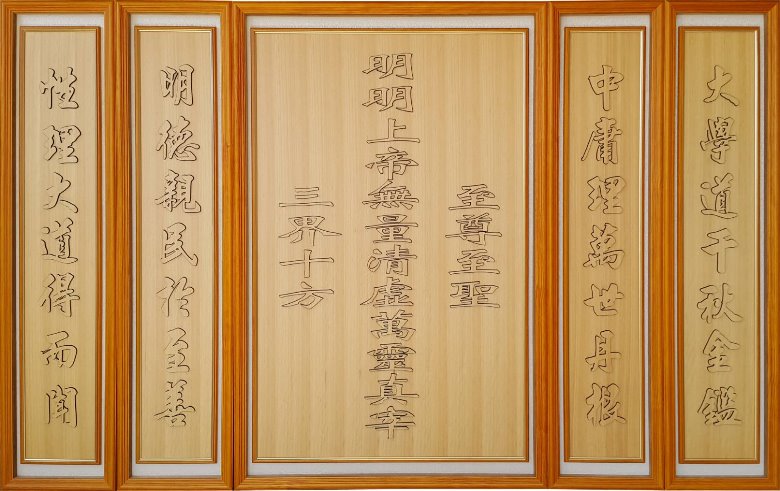 大學道千秋金鑑
中庸理萬世丹根
至尊至聖
明明上帝無量清虛萬靈真宰
三界十方
明德親民於至善
性理文道得而聞